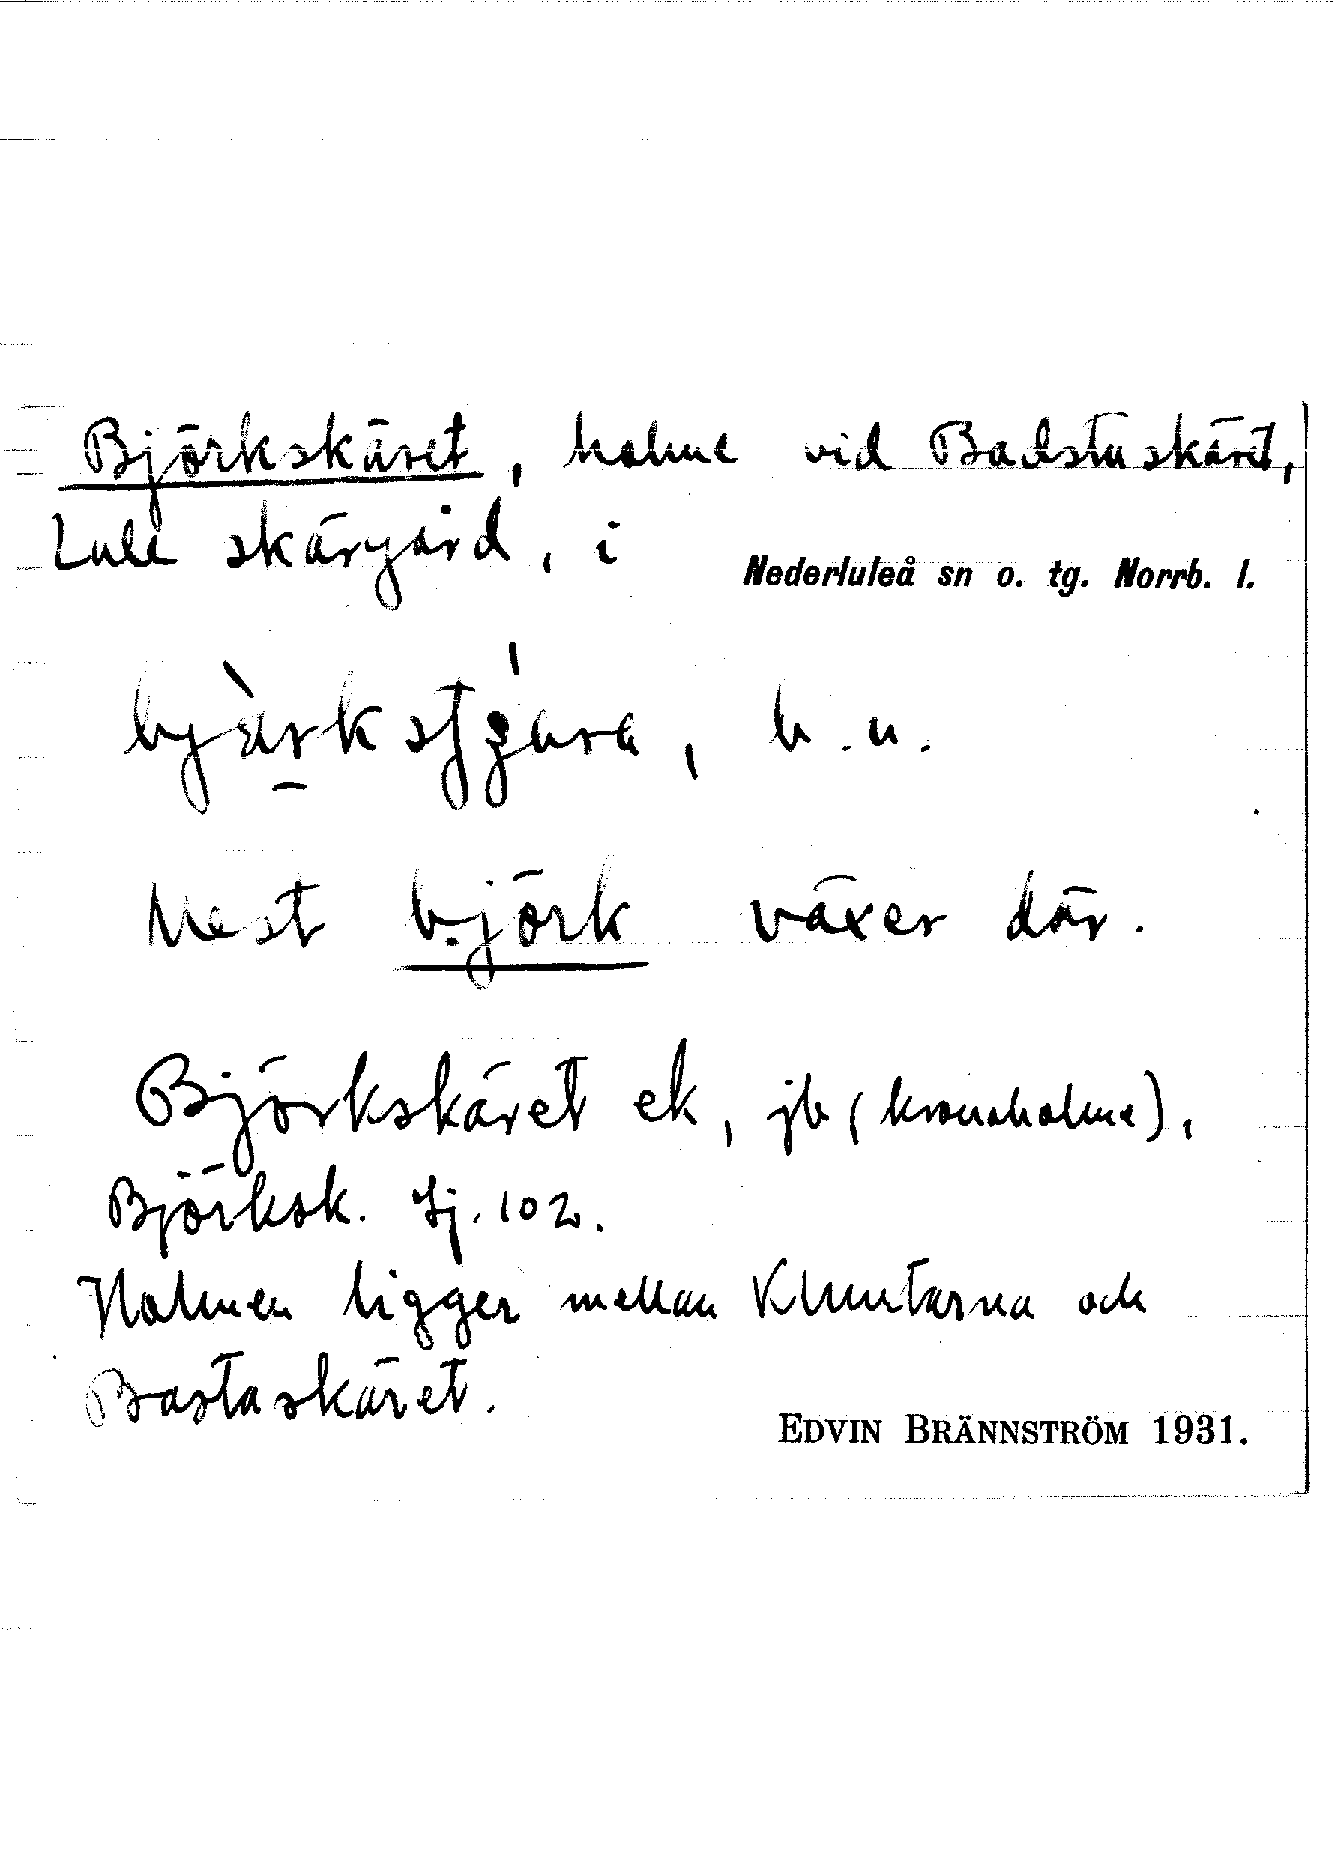 Björkskäret, holme vid Badstuskäret,
Lule skärgård, i Nederluleå sn o. tg. Norrb. l.
b. u.
Mest björk växer där.
Björkskäret ek, jb (kronoholme),
Björksk. Sj. 102.
Holmen ligger mellan Kluntarna och
Bastaskäret.
EDVIN BRÄNNSTRÖM 1931.